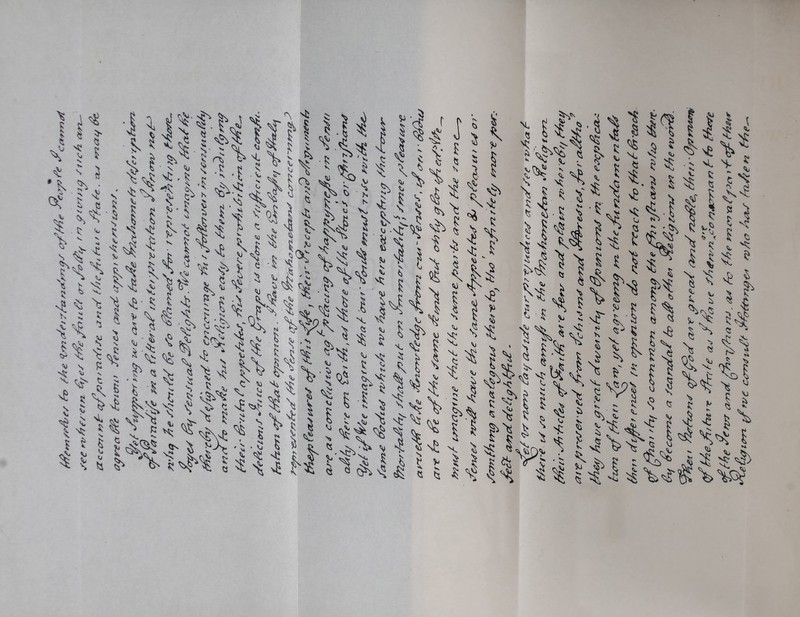 themselves to the understandings of the People I cannot
see wherein lyes the fault or folly, in giving such an
account of paradise and the future State, as may be
agreable to our senses and apprehensions.
Yet supposing we are to take Mahomets description
of Paradise in a litteral interpretation, I know not
why he should be so blamed, for representing those
Joyes by sensual Delights. We cannot imagine that he
thereby designed to encourage his followers in sensuality
and to make his Religion easy to them, by indulging
their brutal appetites, his severe prohibition of the
delicious Juice of the Grape is alone a sufficient confu-
tation of that opinion. I have in the
represented the sense of the Mahometans concerning
the pleasures of this Life, their precepts and Arguments
are as conclusive ag placing of happynesse in sensu
ality here on Earth, as those of the Stoics or Christians
Yet if We imagine that our Souls must rise with the
same bodies which we have here excepting that our
Mortality shall put on Immortality; since pleasure
as well like knowledge from our Senses, if our Bodies
are to be of the same kind but only glorified, We
must imagine that the same parts and the same
Senses will have the same Appetites & pleasures or
something analogous thereto, tho' infinitely more per-
fect and delightful.
Let us now lay aside our prejudices and see what
there is so much amiss in the Mahometan Religion.
their Articles of Faith are few and plain whereby they
are preserved from Schisms and Heresies, for altho'
they have great diversity of Opinions in the explica-
tion of their Law, yet agreeing in the fundamentals
their differences in opinion do not reach to that breach
of Charity so common among the Christians who there-
by become a scandal to all other Religions in the world.
Their Notions of God are great and noble, their Opinions
of the future State as I have shewn are consonant to those
of the Jews and Christians, as to the moral part of their
Religion if we consult Hottinger who has taken the